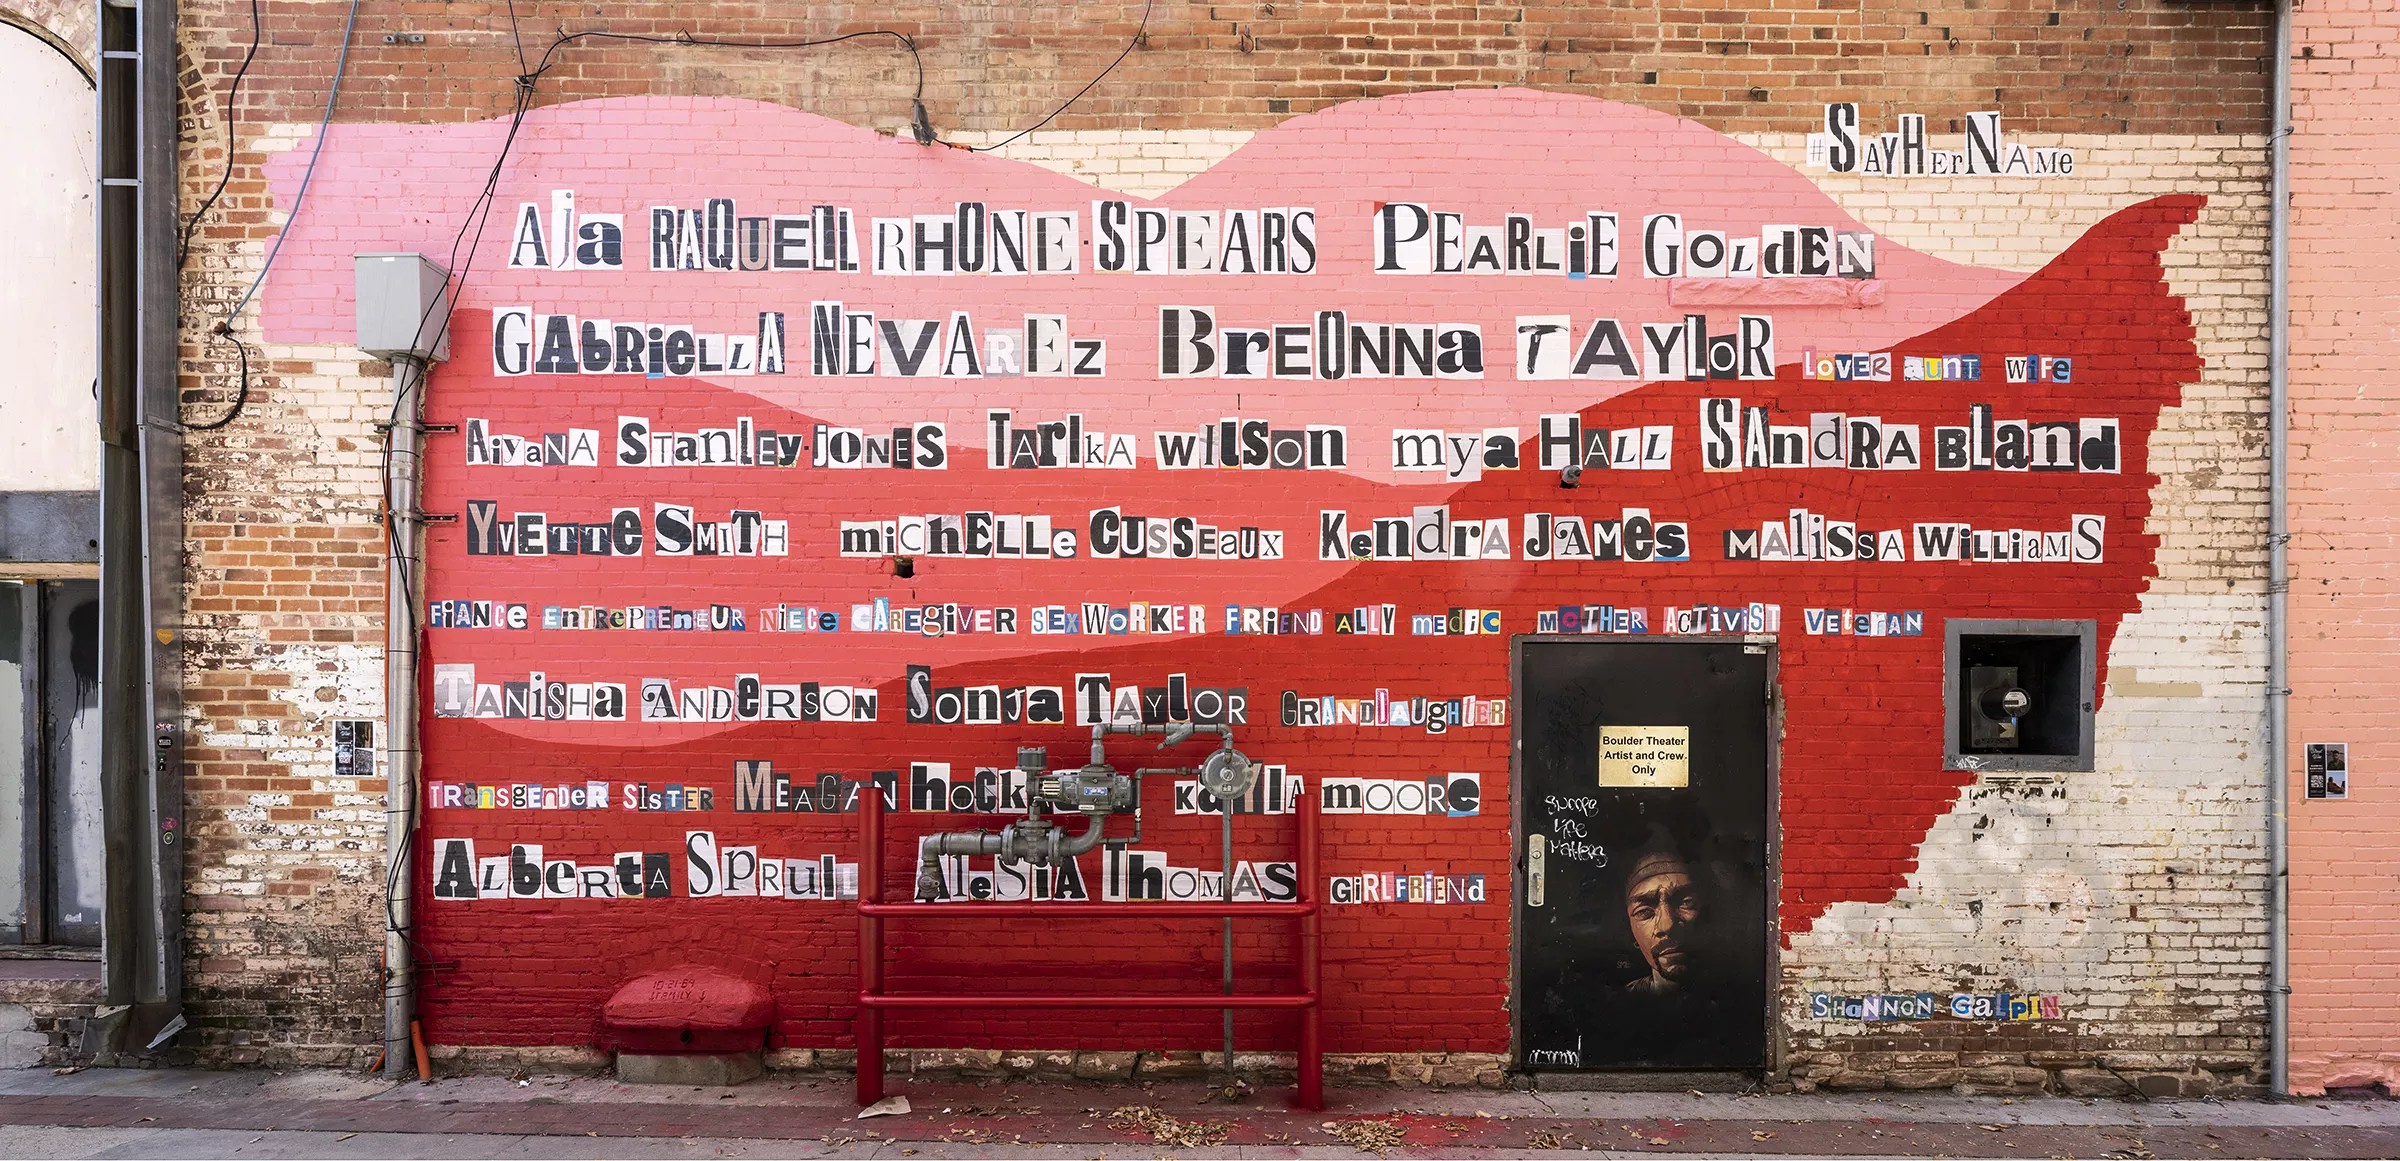 #SayHerName
Aja RAQUELL RHONE-SPEARS PEARLiE GOLdEN
GAbRiELLA NEVAREZ BreONNa TAYLOR LOVER aUNT WiFE
AiyaNA STanley-jONES TarIkA WILSon mya HALL SAndRA BLand
YVETTe SMiTH micHELLe CUSSEaUX KendrA JAMES MALiSSA WiLLiAMS
FiANCE ENTREPRENEUR NiECE CAREGiVER SEXWORKER FRiEND ALLY medic MOTHER ACTiViST VETERAN
TANiSHa ANDERSON SonJa TAYLOR GRANDDAUghTER
TRansgenDeR SiSTER MEAGAN hOCK KaYLA mOORe
ALberta SPruill AleSiA THOMAS GiRLFRiEND
Boulder Theater
Artist and Crew
Only
Life
Matters
10-21-89
SHaNNON GaLPIN